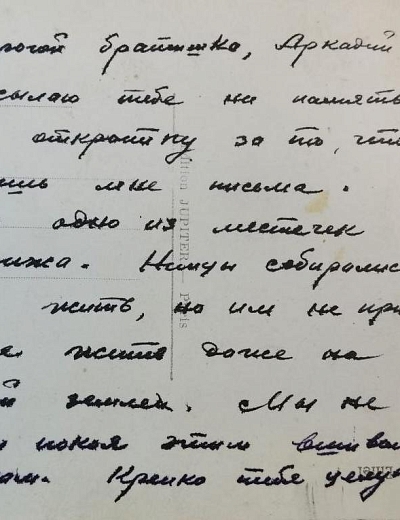 рогой братишка, Аркадий
сылаю тебе на память
открытку за то, что
ишь мне письма.
одно из местечек
рижа. Немцы собиралис
жить, но им не при
жить даже на
й земле. Мы не
покоя этим вшива
ам. Крепко тебе целу
Edition JUPITER. - Paris